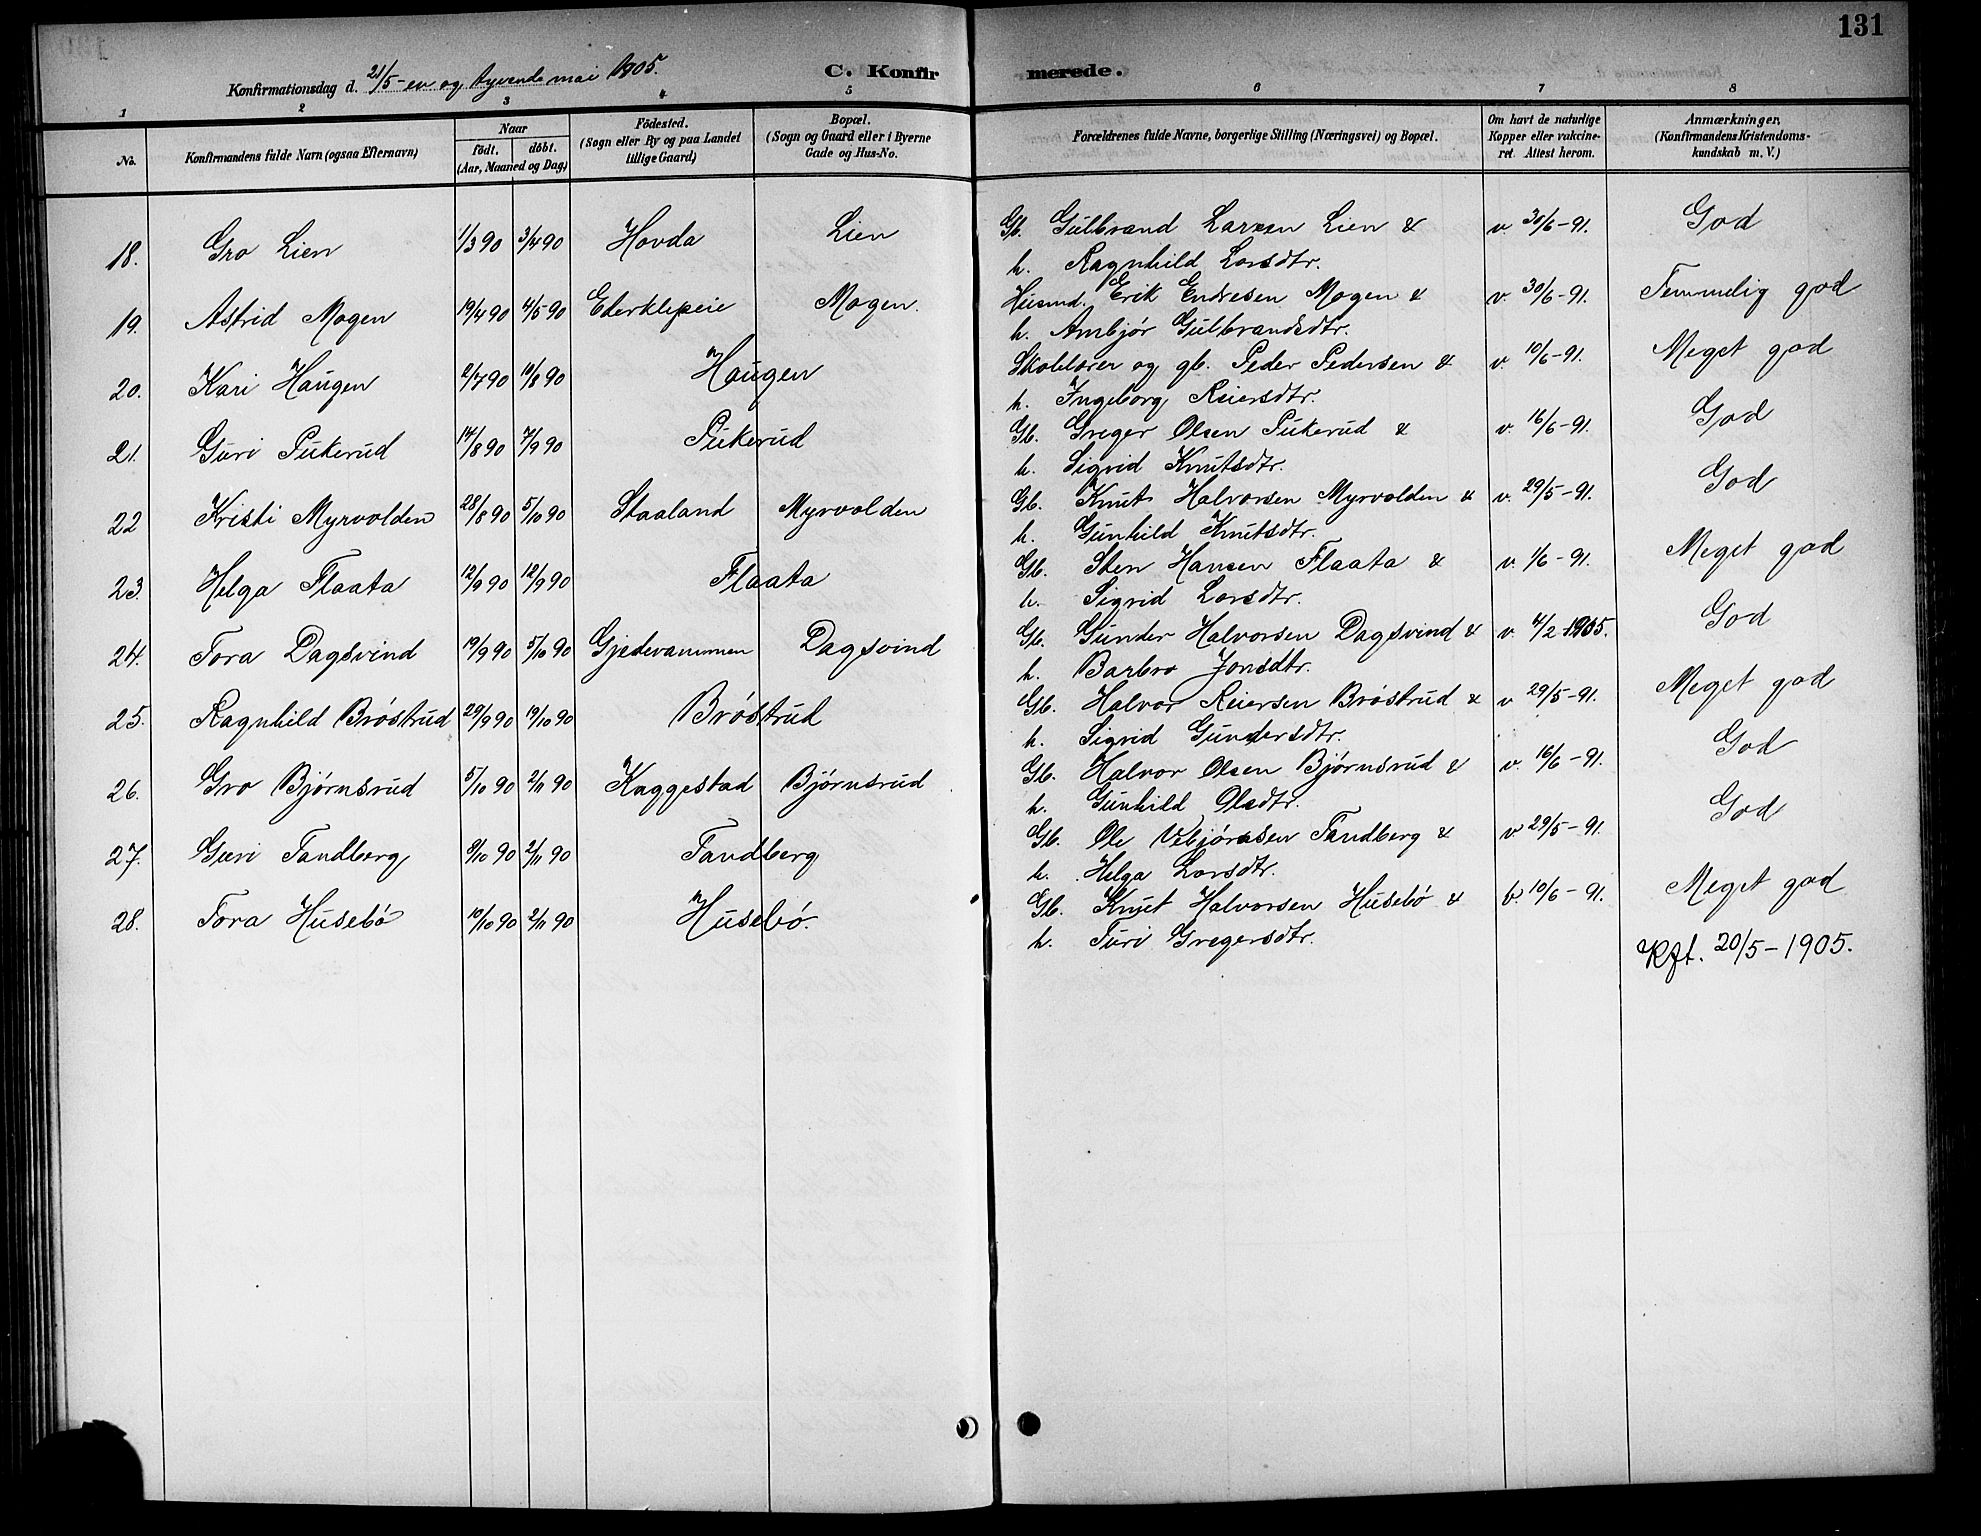 131
Konfirmationsdag d. 21/5 - en og tyvende mai 1905. C. Konfirmerede.
1 2 3 4 5 6 7 8
No. Konfirmandens fulde Navn (ogsaa Efternavn) Naar födt. döbt. (Aar, Maaned og Dag) Födested. (Sogn eller By og paa Landet tillige Gaard) Bopæl. (Sogn og Gaard eller i Byerne Gade og Hus-No. Forældrenes fulde Navne, borgerlige Stilling (Næringsvei) og Bopæl. Om havt de naturlige Kopper eller vakcineret. Attest herom. Anmærkninger, (Konfirmandens Kristendomskundskab m. V.)
18. Gro Lien 1/3 90 3/4 90 Hovda Lien Gb. Gulbrand Larsen Lien & v. 30/6-91. God
h. Ragnhild Larsdtr.
19. Astrid Mogen 19/4 90 4/5 90 Ederklepeie Mogen. Husmd. Erik Endresen Mogen & v. 30/6-91. Temmelig god
h. Ambjør Gulbrandsdtr.
20. Kari Haugen 2/7 90 10/8 90 Haugen Skolelærer og gb. Peder Pedersen & v. 10/6-91. Meget god
h. Ingeborg Reiersdtr.
21. Guri Pukerud 14/8 90 7/9 90 Pukerud Gb. Greger Olsen Pukerud & v. 16/6-91. God
h. Sigrid Knutsdtr.
22 Kristi Myrvolden 28/8 90 5/10 90 Staaland Myrvolden Gb. Knut Halvorsen Myrvolden & v. 29/5-91. God
h. Gunhild Knutsdtr.
23. Helga Flaata 12/9 90 12/9 90 Flaata Gb. Sten Hansen Flaata & v. 1/6-91. Meget god
h. Sigrid Larsdtr.
24. Tora Dagsvind 19/9 90 5/10 90 Gjedevammen Dagsvind Gb. Gunder Halvorsen Dagsvind & v. 4/2 1905. God
h. Barbro Jonsdtr.
25. Ragnhild Brøstrud 29/9 90 19/10 90 Brøstrud Gb. Halvor Reiersen Brøstrud & v 29/5-91. Meget god
h. Sigrid Gundersdtr.
26. Gro Bjørnsrud 5/10 90 2/11 90 Kaggestad Bjørnsrud Gb. Halvor Olsen Bjørnsrud & v. 16/6-91. God
h. Gunhild Olsdtr.
27. Guri Tandberg 8/10 90 2/11 90 Tandberg Gb. Ole Vebjørnsen Tandberg & v 29/5-91. God
h. Helga Larsdtr.
28. Tora Husebø 10/10 90 2/11 90 Husebø. Gb. Knut Halvorsen Husebø & v. 10/6-91. Meget god
h. Turi Gregersdtr.
Kft. 20/5-1905.